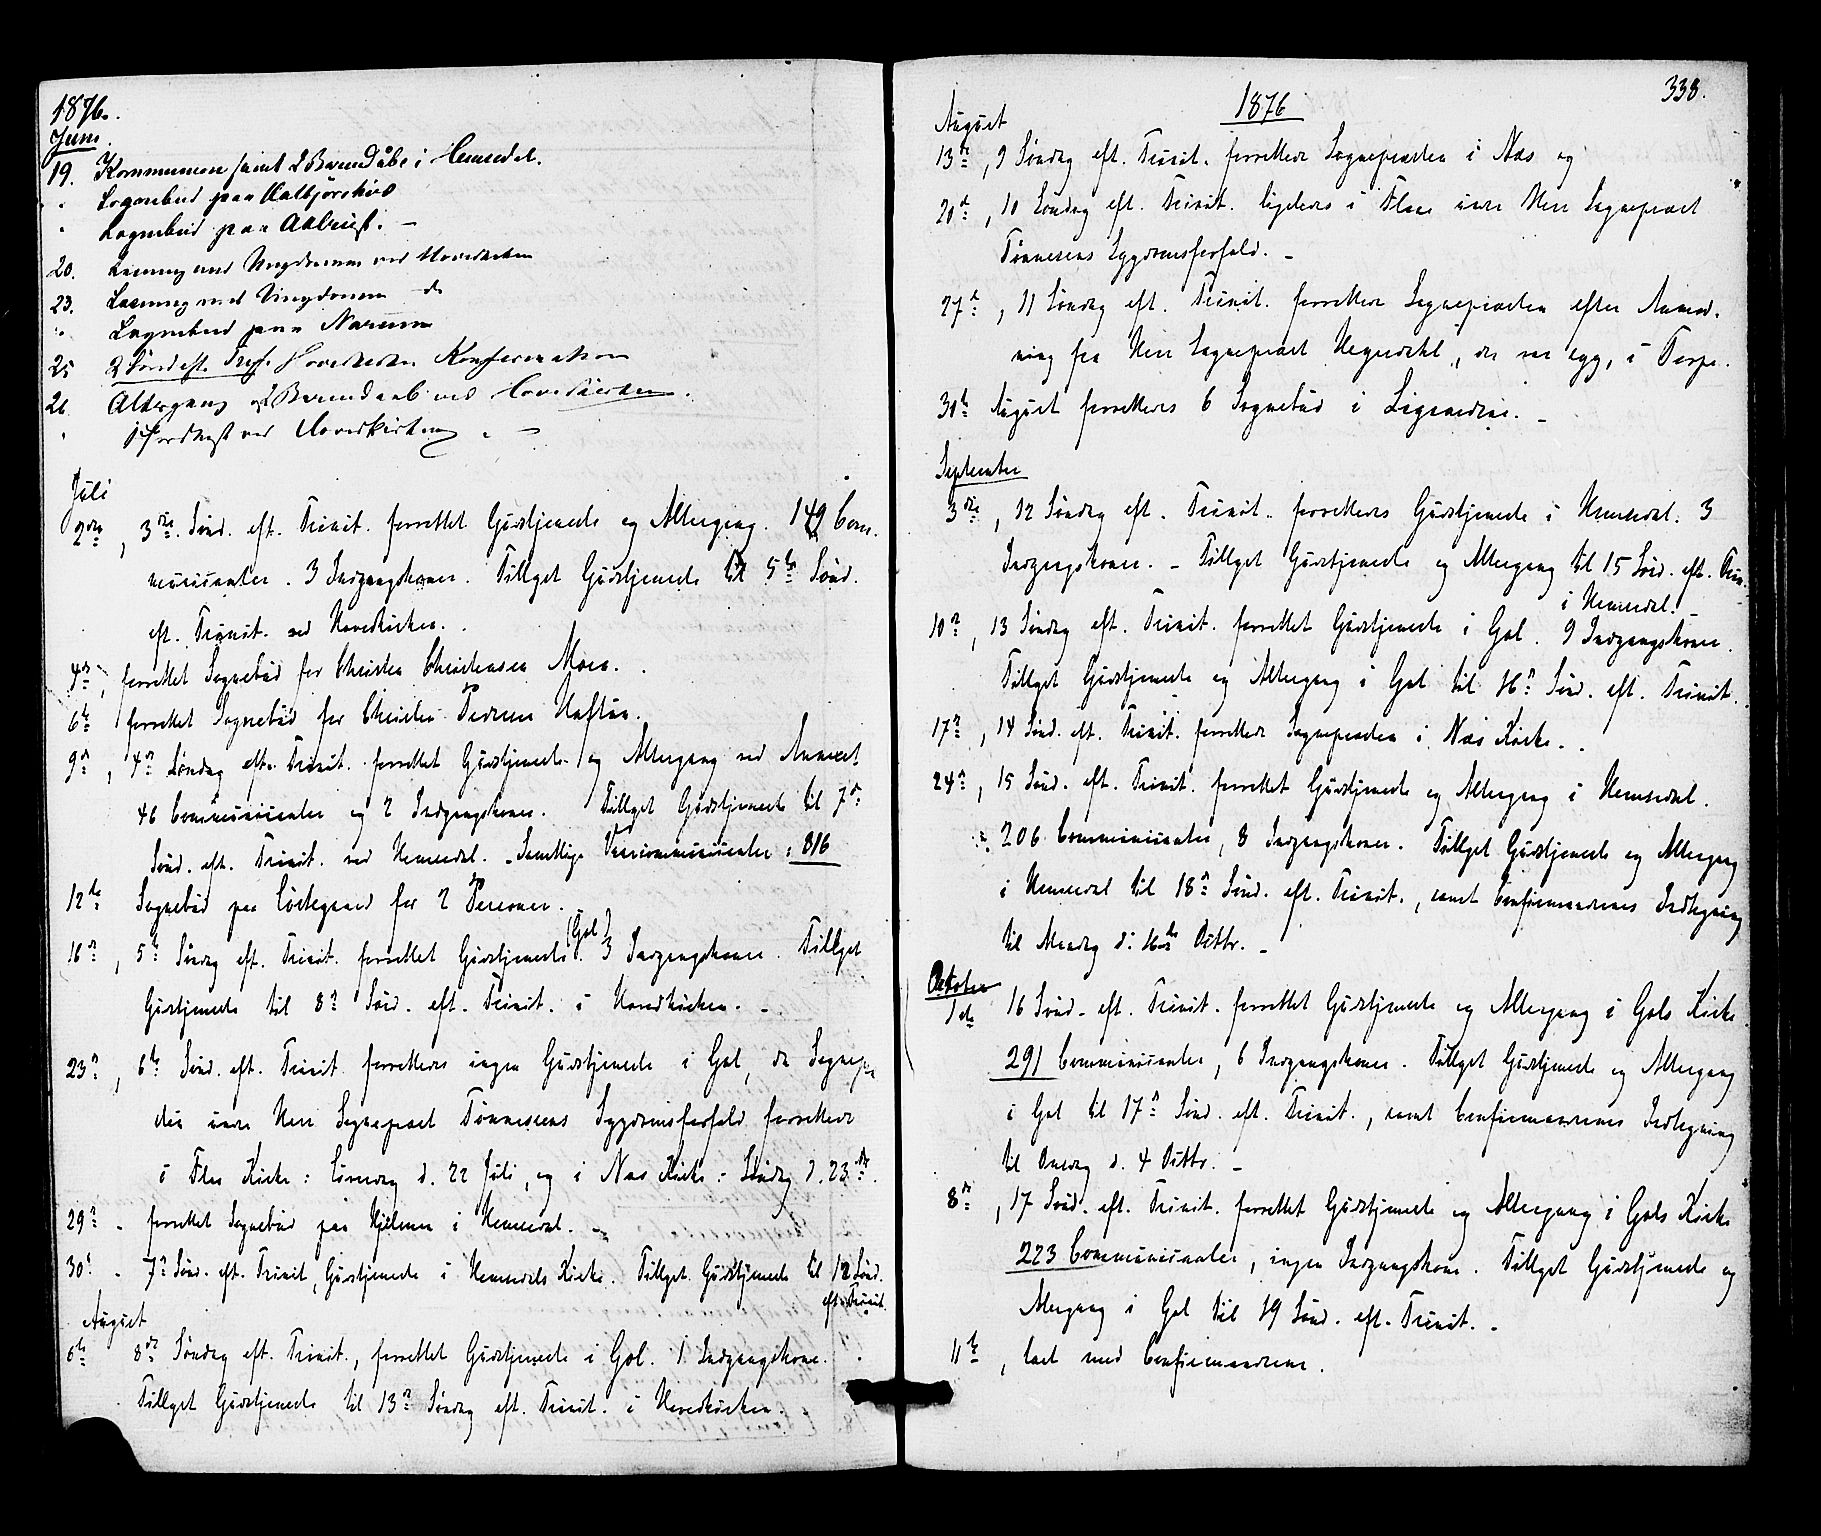 1876.
Juni.
19. Kommunion samt 2 Barnedåbe i Hemsedal.
" Sognebud paa
" Sognebud paa
20. Læsning med Ungdommen ved Hovedkirken
23. Læsning med Ungdommen do
" Sognebud paa
25 2 Sønd eft. Tref. Hovedkirken Konfirmation
26. Altergang og 2 Barnedaab ved Hovedkirken.
" ved Hovedkirken
Juli
2den, 3die Sønd. eft. Trinit. forrettet Gudstjeneste og Altergang. 149 Com-
municanter. 3 Indgangskoner. Tillyst Gudstjeneste til 5te Sønd.
eft. Trinit. ved Hovedkirken.
4de, forrettet Sognebud for Christen Christensen Moen.
6te forrettet Sognebud for Christen Pedersen
9de, 4de Søndag eft. Trinit. forrettet Gudstjeneste og Altergang ved Annexet
46 Communicanter og 2 Indgangskoner. Tillyst Gudstjeneste til 7de
Sønd. eft. Trinit. ved Hemsedal. Samtlige Vaarcommunicanter: 816
12te Sognebud paa for 2 Personer.
16de, 5te Søndag eft. Trinit. forrettet Gudstjeneste (Gol) 3 Indgangskoner. Tillyst
Gudstjeneste til 8de Sønd. eft. Trinit. i Hovedkirken. -
23de, 6te Sønd. eft. Trinit. forrettedes ingen Gudstjeneste i Gol, da Sognepræ-
sten under Herr Sognepræst Tønnesens Sygdomsforfald forrettede
i Flaa Kirke: Løverdag d. 22 Juli, og i Næs Kirke: Søndag d. 23de.
29de - forrettet Sognebud paa i Hemsedal. -
30te - 7de Sønd. eft. Trinit, Gudstjeneste i Hemsedals Kirke. Tillyst Gudstjeneste til 12 Sønd.
eft. Trinit.
August
6te 8de Søndag eft. Trinit., forrettet Gudstjeneste i Gol. 1 Indgangskone.
Tillyst Gudstjeneste til 13de Søndag eft. Trinit. i Hovedkirken.
338.
1876
August
13de, 9 Søndag eft. Trinit. forrettede Sognepræsten i Næs og
20de, 10 Søndag eft. Trinit. ligeledes i Flaa under Herr Sognepræst
Tønnesens Sygdomsforfald. -
27de, 11 Søndag eft. Trinit. forrettede Sognepræsten efter Anmod-
ning fra Herr Sognepræst, der var syg, i Torpe.
30te August forrettedes 6 Sognebud i
September
3die, 12 Søndag eft. Trinit. forrettedes Gudstjeneste i Hemsedal. 3
Indgangskoner. - Tillyst Gudstjeneste og Altergang til 15 Sønd. eft. Trin.
i Hemsedal. -
10de, 13 Søndag eft. Trinit. forrettet Gudstjeneste i Gol. 9 Indgangskoner.
Tillyst Gudstjeneste og Altergang i Gol til 16de Sønd. eft. Trinit.
17de, 14 Sønd. eft. Trinit. forrettede Sognepræsten i Næs Kirke. -
24de, 15 Sønd. eft. Trinit. forrettet Gudstjeneste og Altergang i Hemsedal.
206 Communicanter, 8 Indgangskoner. Tillyst Gudstjeneste og Altergang
i Hemsedal til 18de Sønd. eft. Trinit., samt Confirmandernes Indtegning
til Mandag d. 16de Octbr. -
October
1ste 16 Sønd. eft. Trinit. forrettet Gudstjeneste og Altergang i Gols Kirke
291 Communicanter, 6 Indgangskoner. Tillyst Gudstjeneste og Altergang
i Gol til 17de Sønd. eft. Trinit., samt Confirmandernes Indtegning
til Onsdag d. 4 Octbr. -
8de, 17 Sønd. eft. Trinit. forrettet Gudstjeneste og Altergang i Gols Kirke
223 Communicanter, ingen Indgangskone. Tillyst Gudstjeneste og
Altergang i Gol til 19 Sønd. eft. Trinit. -
11te, læst med Confirmanderne.